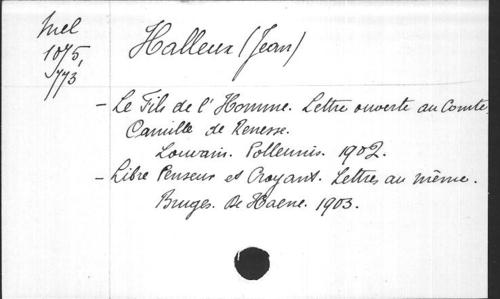 Mel
1075,
773
Halleux (Jean)
- Le Fils de l'Homme. Lettre ouverte au Comte
Camille de Renesse.
Louvain. Polleunis. 1902.
- Libre Penseur et Croyant. Lettres au même.
Bruges. De Haene. 1903.